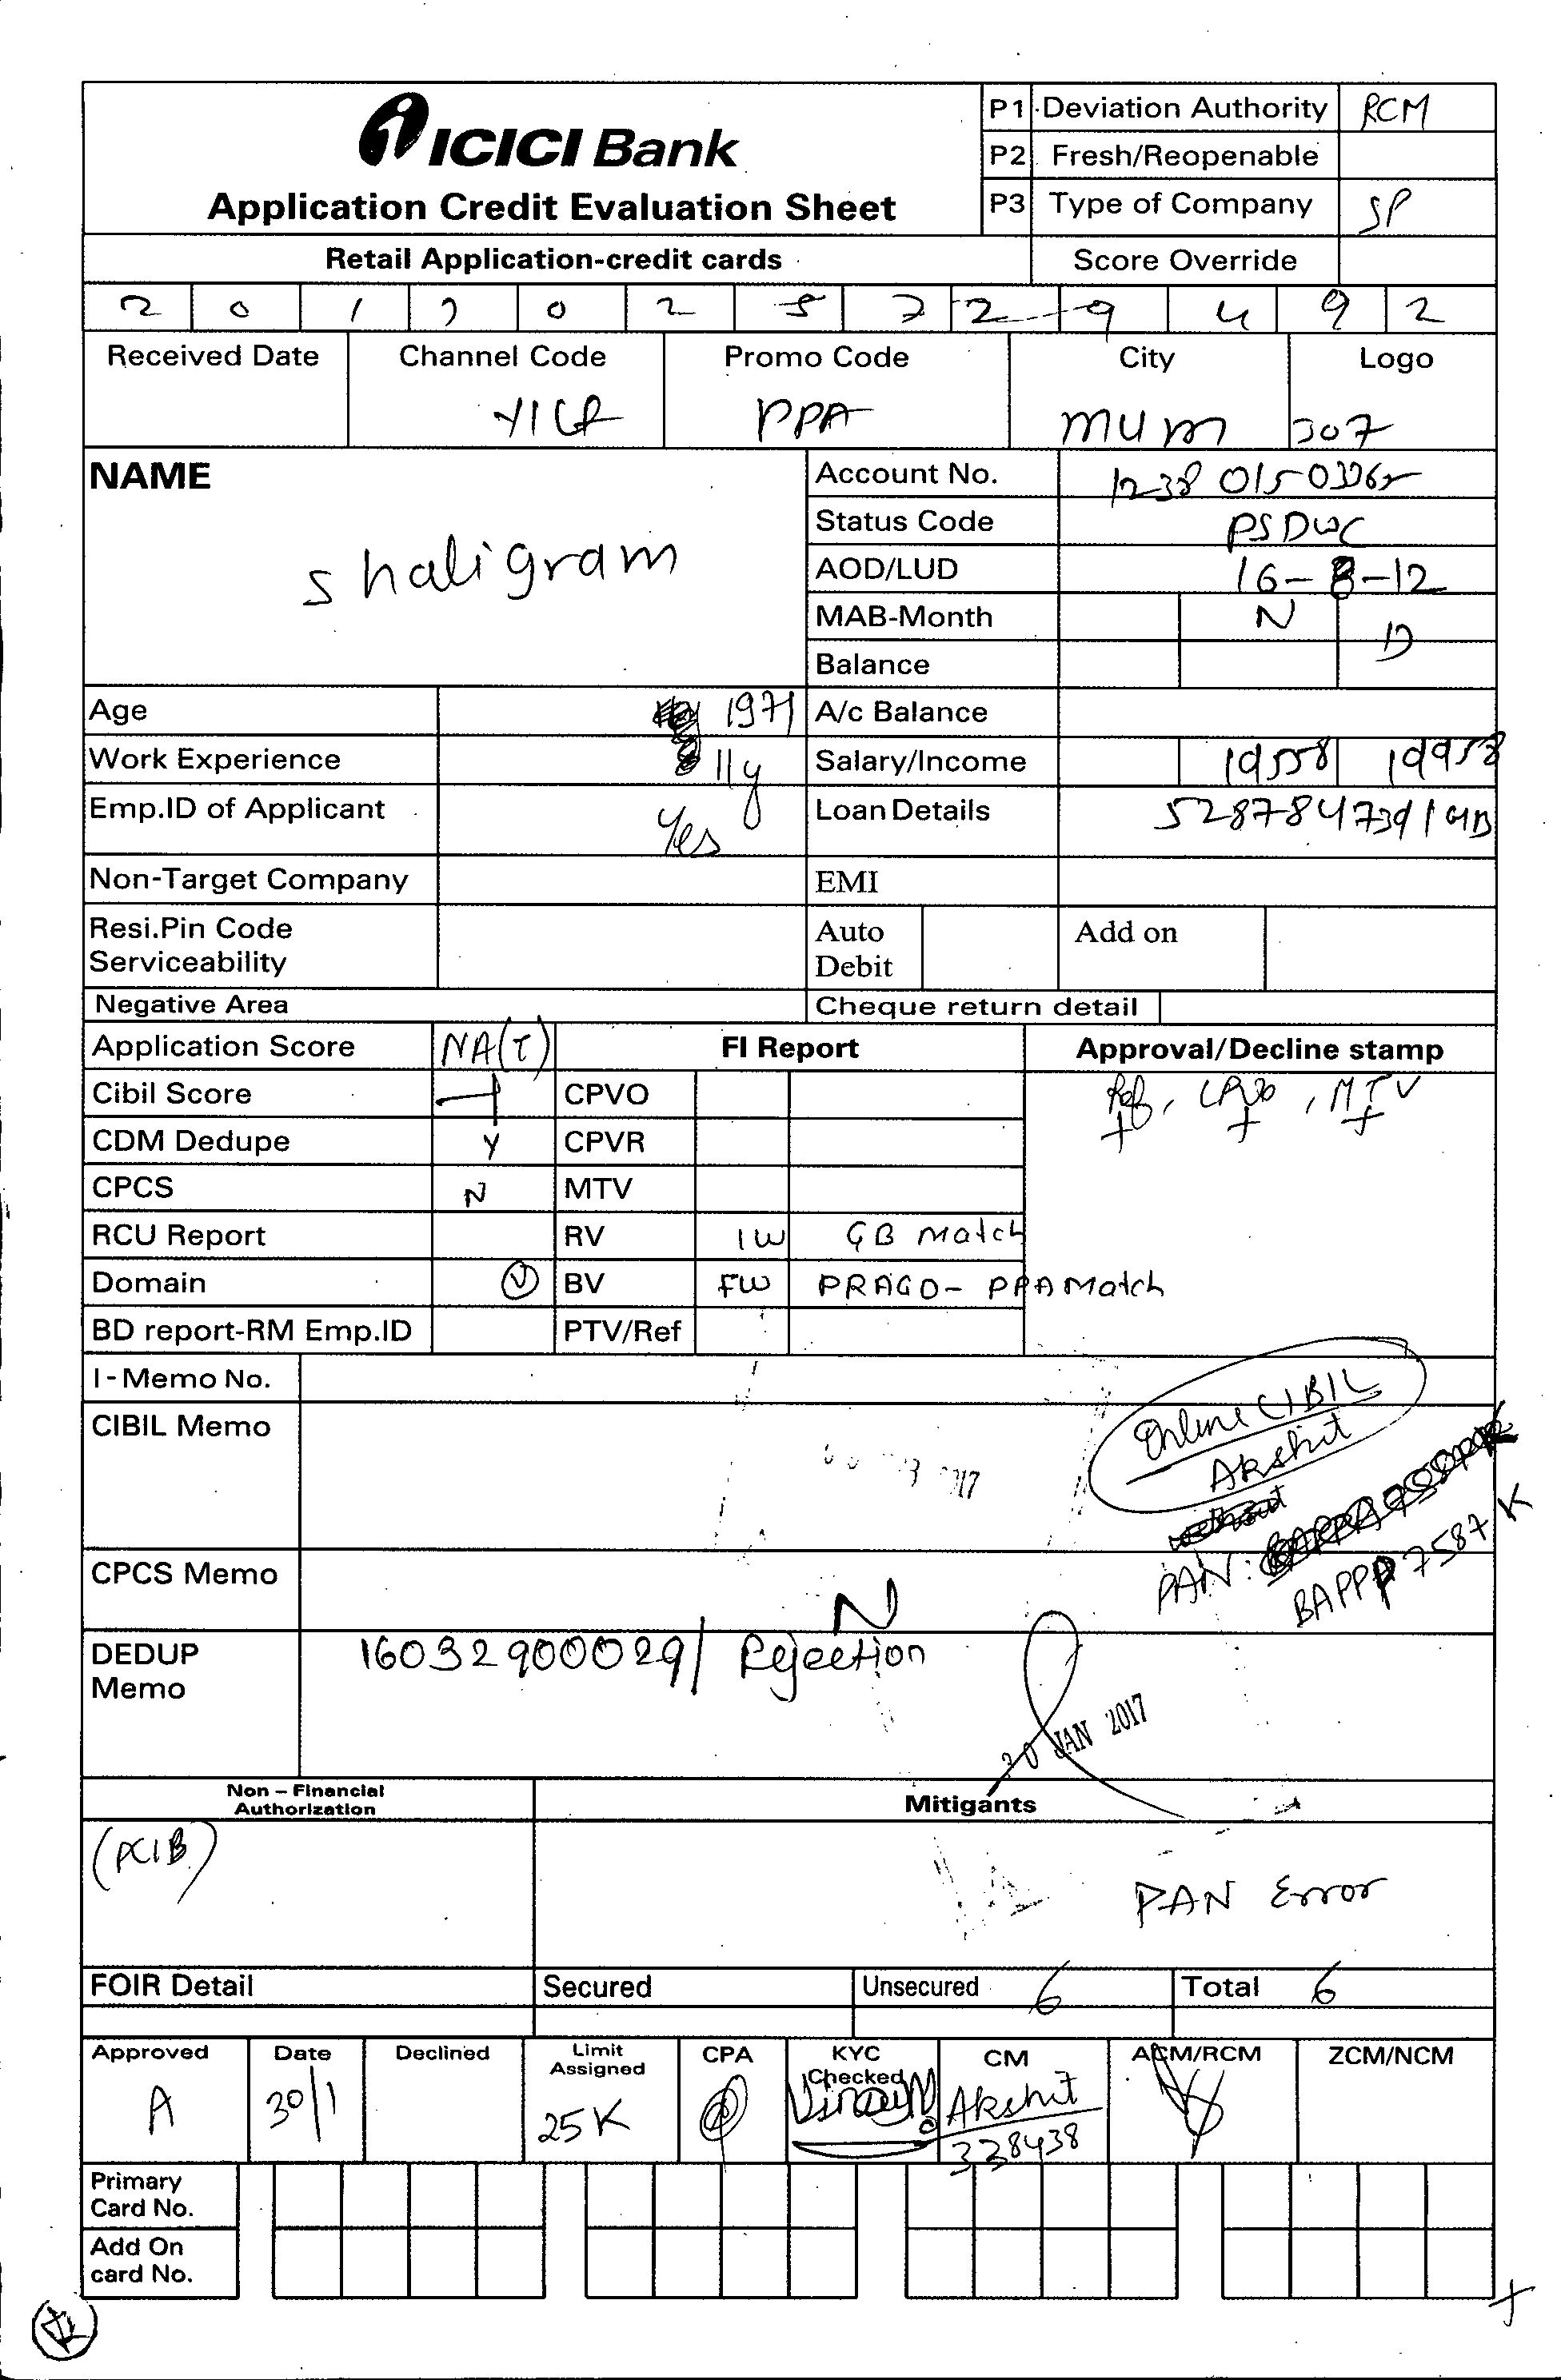 ICICI Bank
Application Credit Evaluation Sheet
P1 Deviation Authority RCM
P2 Fresh/Reopenable
P3 Type of Company SP
Retail Application-credit cards Score Override
Received Date Channel Code Promo Code City Logo
PPA MUM 307
NAME
shaligram
Account No.
Status Code PSDWC
AOD/LUD 16-8-12
MAB-Month N
D
Balance
Age 1971
A/c Balance
Work Experience 11y
Salary/Income 19558 19958
Emp.ID of Applicant Yes
Loan Details
Non-Target Company
EMI
Resi.Pin Code Serviceability
Auto Debit
Add on
Negative Area
Cheque return detail
Application Score NA(T)
FI Report
Approval/Decline stamp
Cibil Score
CPVO
Ref, , MTV
CDM Dedupe Y
CPVR
CPCS N
MTV
RCU Report
RV 1W GB Match
Domain
BV FW PRAGO- PPA Match
BD report-RM Emp.ID
PTV/Ref
I - Memo No.
CIBIL Memo
Online CIBIL
Akshit
PAN: BAPPP7587K
CPCS Memo
N
DEDUP Memo
16032900029/ Rejection
30 JAN 2017
Non – Financial Authorization
Mitigants
(PCIB)
PAN Error
FOIR Detail Secured Unsecured 6 Total 6
Approved Date Declined Limit Assigned CPA KYC Checked CM ACM/RCM ZCM/NCM
A 30/1 25K Akshit
338438
Primary Card No.
Add On card No.